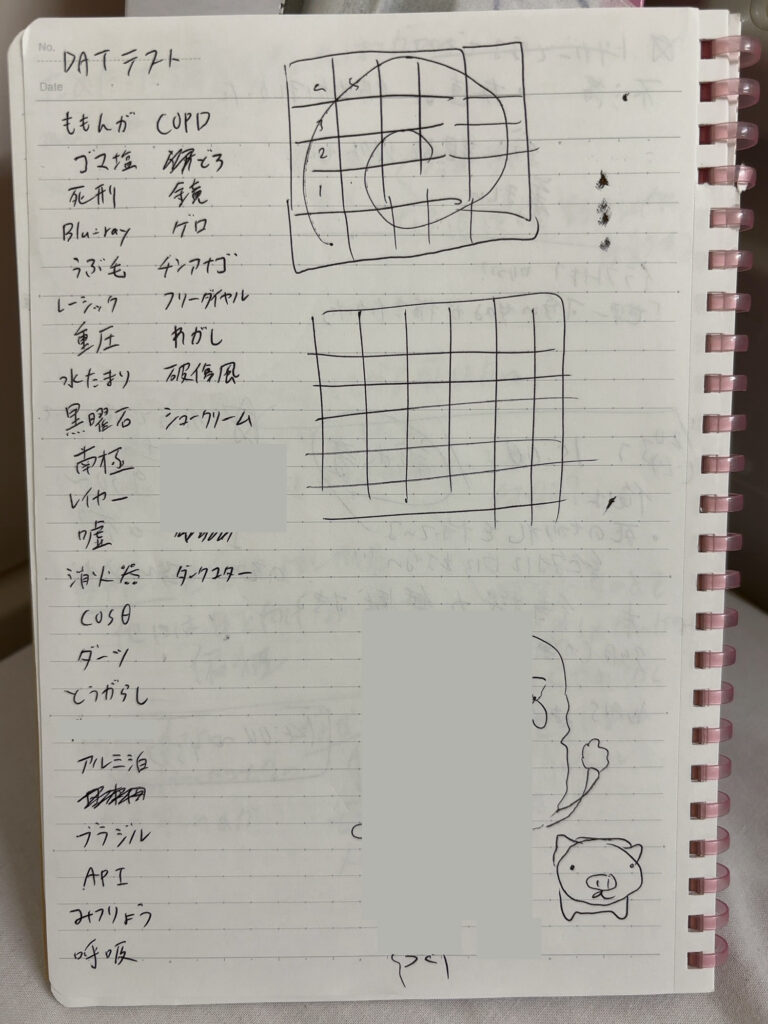 No.
Date
DATテスト
ももんが
ゴマ塩
死刑
Blu-ray
うぶ毛
レーシック
重圧
水たまり
黒曜石
南極
レイヤー
嘘
消火器
COSθ
ダーツ
とうがらし
アルミ泊
ブラジル
API
みつりょう
呼吸
COPD
鏡
ゲロ
チンアナゴ
フリーダイヤル
わがし
破傷風
シュークリーム
ダークスター
2
1